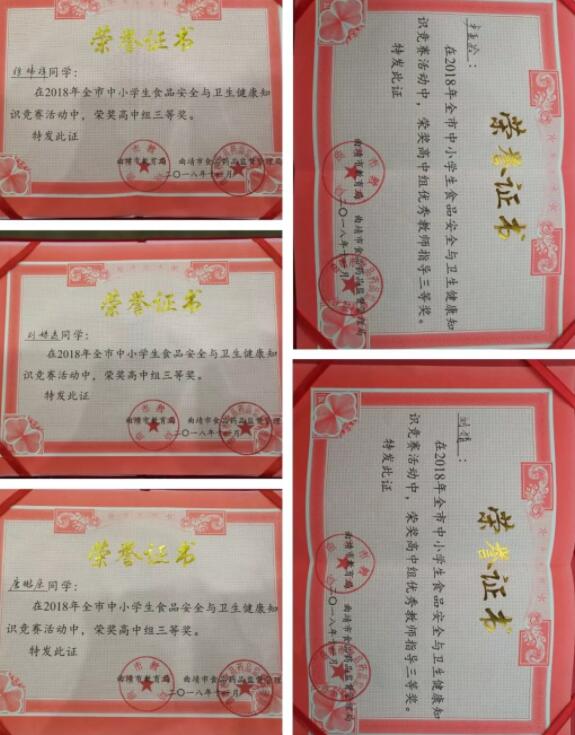 荣誉证书
同学：
在2018年全市中小学生食品安全与卫生健康知
识竞赛活动中，荣奖高中组三等奖。
特发此证
曲靖市教育局 曲靖市食品药品监督管理局
二〇一八年十一月
荣誉证书
同学：
在2018年全市中小学生食品安全与卫生健康知
识竞赛活动中，荣奖高中组三等奖。
特发此证
曲靖市教育局 曲靖市食品药品监督管理
二〇一八年十一月
荣誉证书
同学：
在2018年全市中小学生食品安全与卫生健康知
识竞赛活动中，荣奖高中组三等奖。
特发此证
曲靖市教育局 曲靖市食品药品监督管理局
二〇一八年十一月
荣誉证书
：
在2018年全市中小学生食品安全与卫生健康知
识竞赛活动中，荣奖高中组优秀教师指导三等奖。
特发此证
曲靖市教育局 曲靖市食品药品监督管理局
二〇一八年十一月
荣誉证书
：
在2018年全市中小学生食品安全与卫生健康知
识竞赛活动中，荣奖高中组优秀教师指导三等奖。
特发此证
曲靖市教育局 曲靖市食品药品监督管理局
二〇一八年十一月